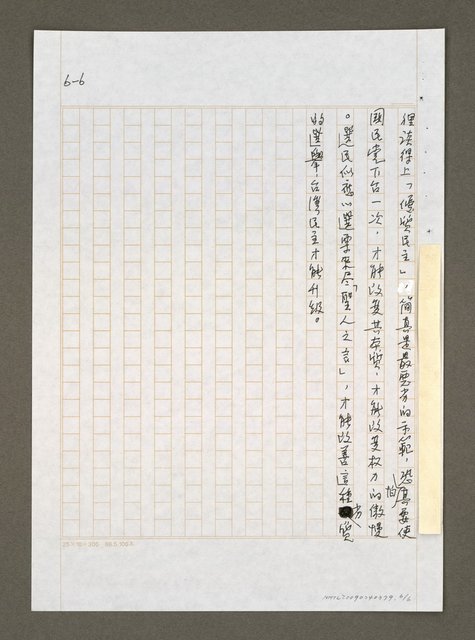 6-6
裡談得上「優質民主」，簡直是最惡劣的示範，恐怕真要使
國民党下台一次，才能改變其本質，才能改變权力的傲慢
。選民似應以選票來尽「聖人之言」，才能改善這種劣質
的選舉，台灣民主才能升級。
NMTL20090740479, 6/6